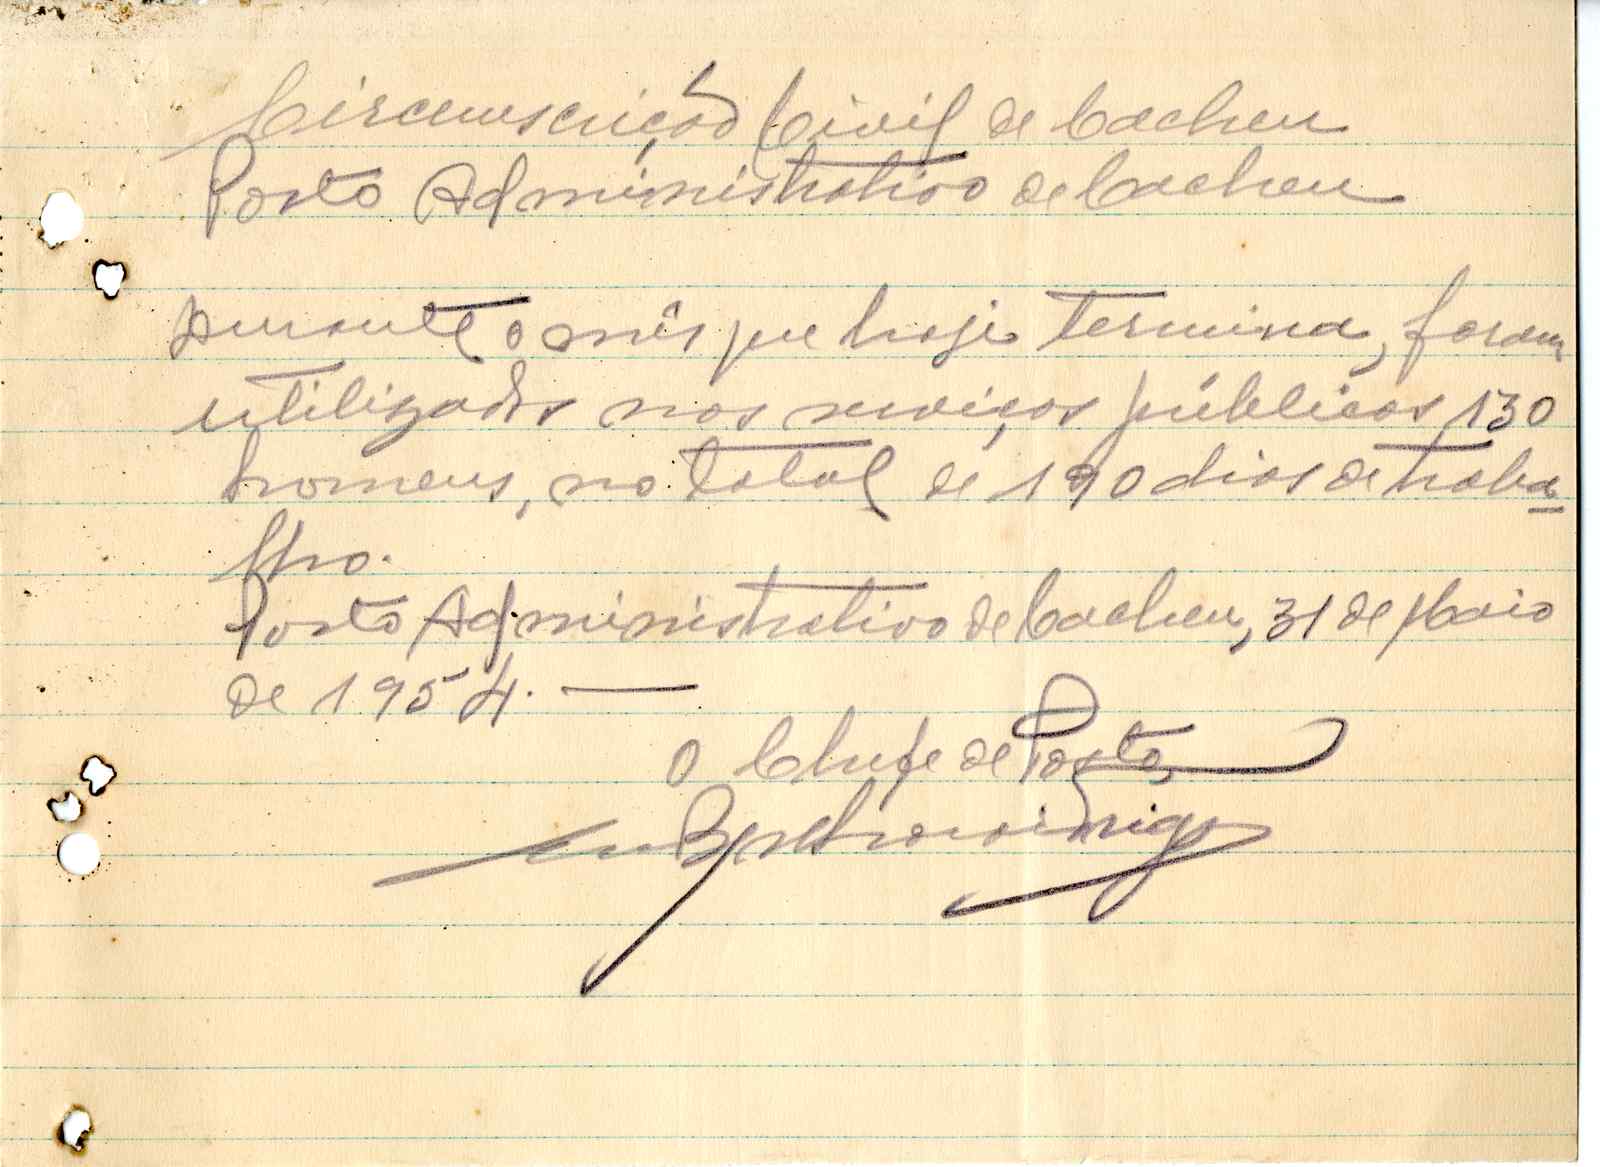 Circunscrição Civil de Cacheu
Posto Administrativo de Cacheu
Durante o mês que hoje termina, foram
utilizados nos serviços públicos 130
homens, no total de 190 dias de traba
lho.
Posto Administrativo de Cacheu, 31 de Maio
de 1954. —
O Chefe de Posto,